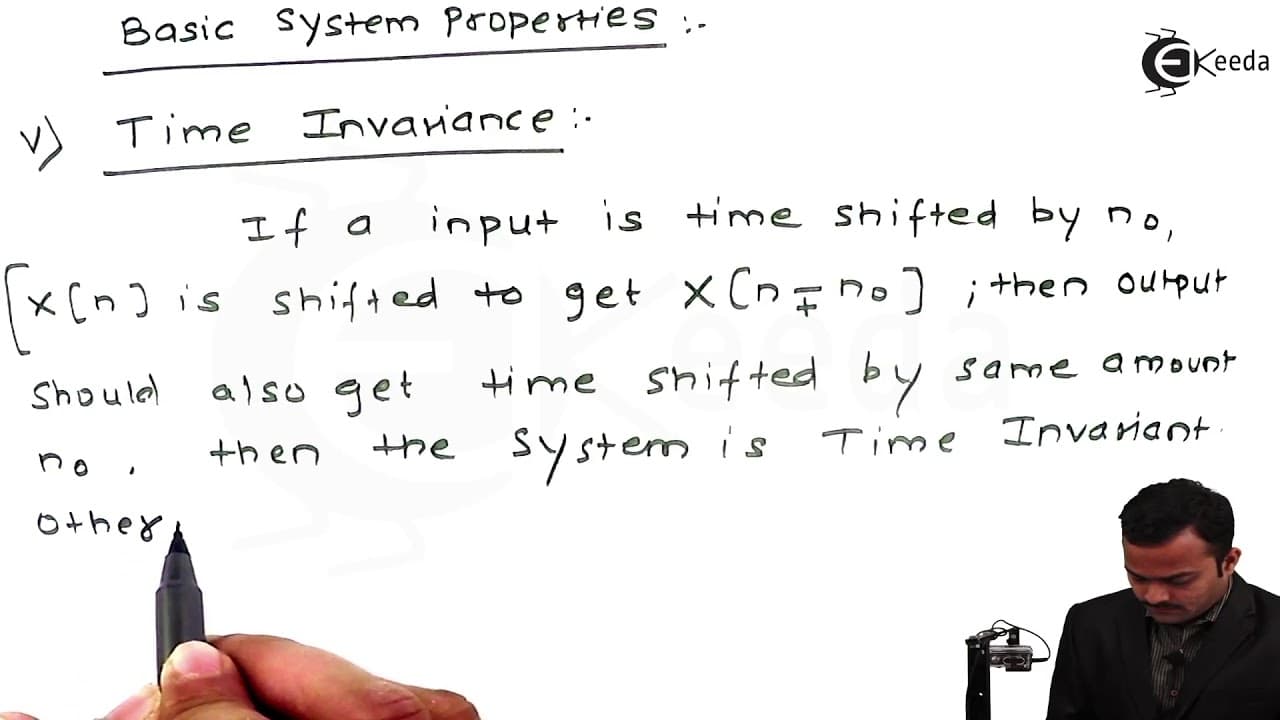 Basic System Properties :-
EKeeda
V) Time Invariance :-
If a input is time shifted by n₀,
[x[n] is shifted to get x[n ∓ n₀] ; then output
should also get time shifted by same amount
n₀ , then the system is Time Invariant.
other